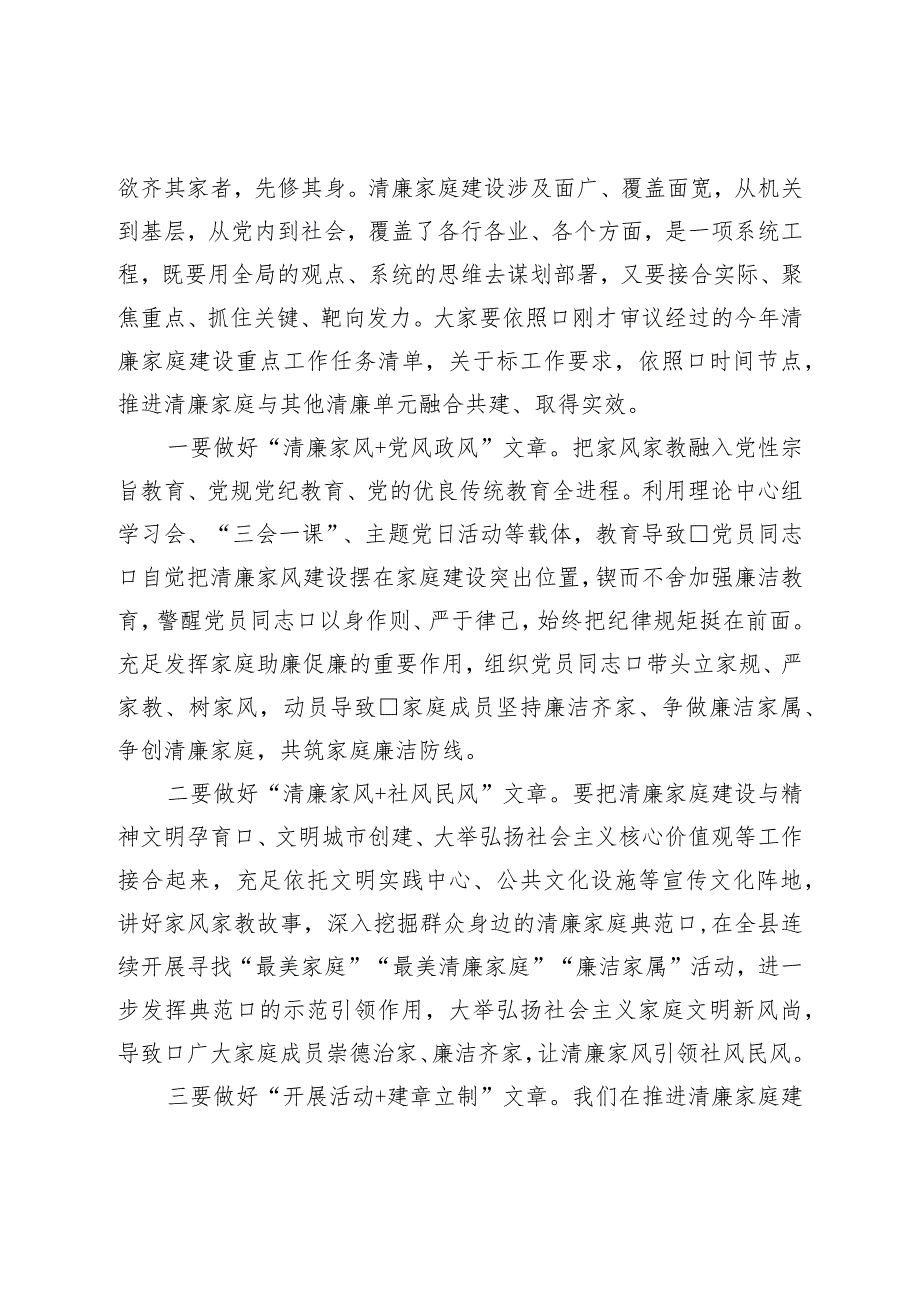 欲齐其家者，先修其身。清廉家庭建设涉及面广、覆盖面宽，从机关
到基层，从党内到社会，覆盖了各行各业、各个方面，是一项系统工
程，既要用全局的观点、系统的思维去谋划部署，又要接合实际、聚
焦重点、抓住关键、靶向发力。大家要依照口刚才审议经过的今年清
廉家庭建设重点工作任务清单，关于标工作要求，依照口时间节点，
推进清廉家庭与其他清廉单元融合共建、取得实效。
一要做好“清廉家风+党风政风”文章。把家风家教融入党性宗
旨教育、党规党纪教育、党的优良传统教育全进程。利用理论中心组
学习会、“三会一课”、主题党日活动等载体，教育导致□党员同志
口自觉把清廉家风建设摆在家庭建设突出位置，锲而不舍加强廉洁教
育，警醒党员同志口以身作则、严于律己，始终把纪律规矩挺在前面。
充足发挥家庭助廉促廉的重要作用，组织党员同志口带头立家规、严
家教、树家风，动员导致□家庭成员坚持廉洁齐家、争做廉洁家属、
争创清廉家庭，共筑家庭廉洁防线。
二要做好“清廉家风+社风民风”文章。要把清廉家庭建设与精
神文明孕育口、文明城市创建、大举弘扬社会主义核心价值观等工作
接合起来，充足依托文明实践中心、公共文化设施等宣传文化阵地，
讲好家风家教故事，深入挖掘群众身边的清廉家庭典范口,在全县连
续开展寻找“最美家庭”“最美清廉家庭”“廉洁家属”活动，进一
步发挥典范口的示范引领作用，大举弘扬社会主义家庭文明新风尚，
导致口广大家庭成员崇德治家、廉洁齐家，让清廉家风引领社风民风。
三要做好“开展活动+建章立制”文章。我们在推进清廉家庭建